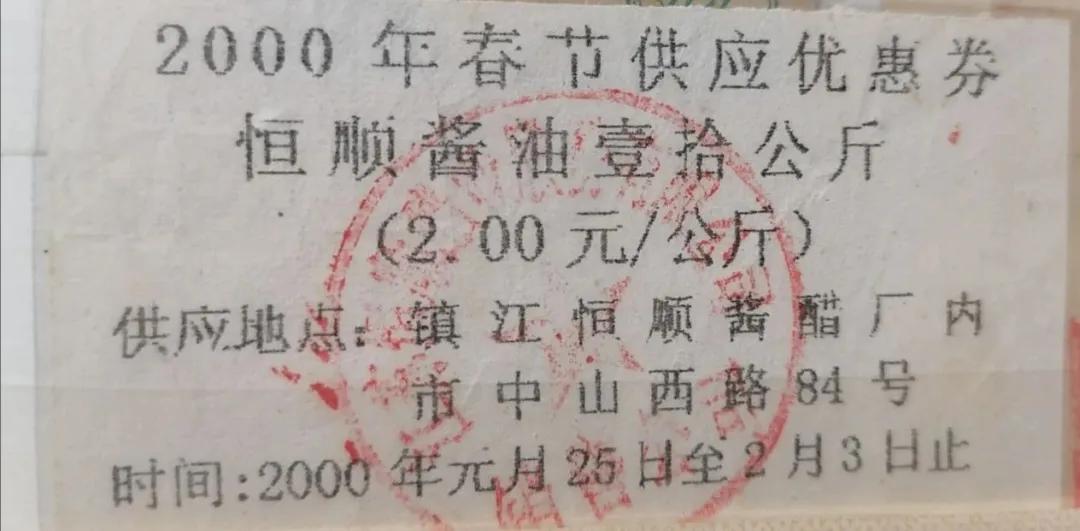 2000年春节供应优惠券
恒顺酱油壹拾公斤
(2.00元/公斤)
供应地点:镇江恒顺酱醋厂内
市中山西路84号
时间:2000年元月25日至2月3日止